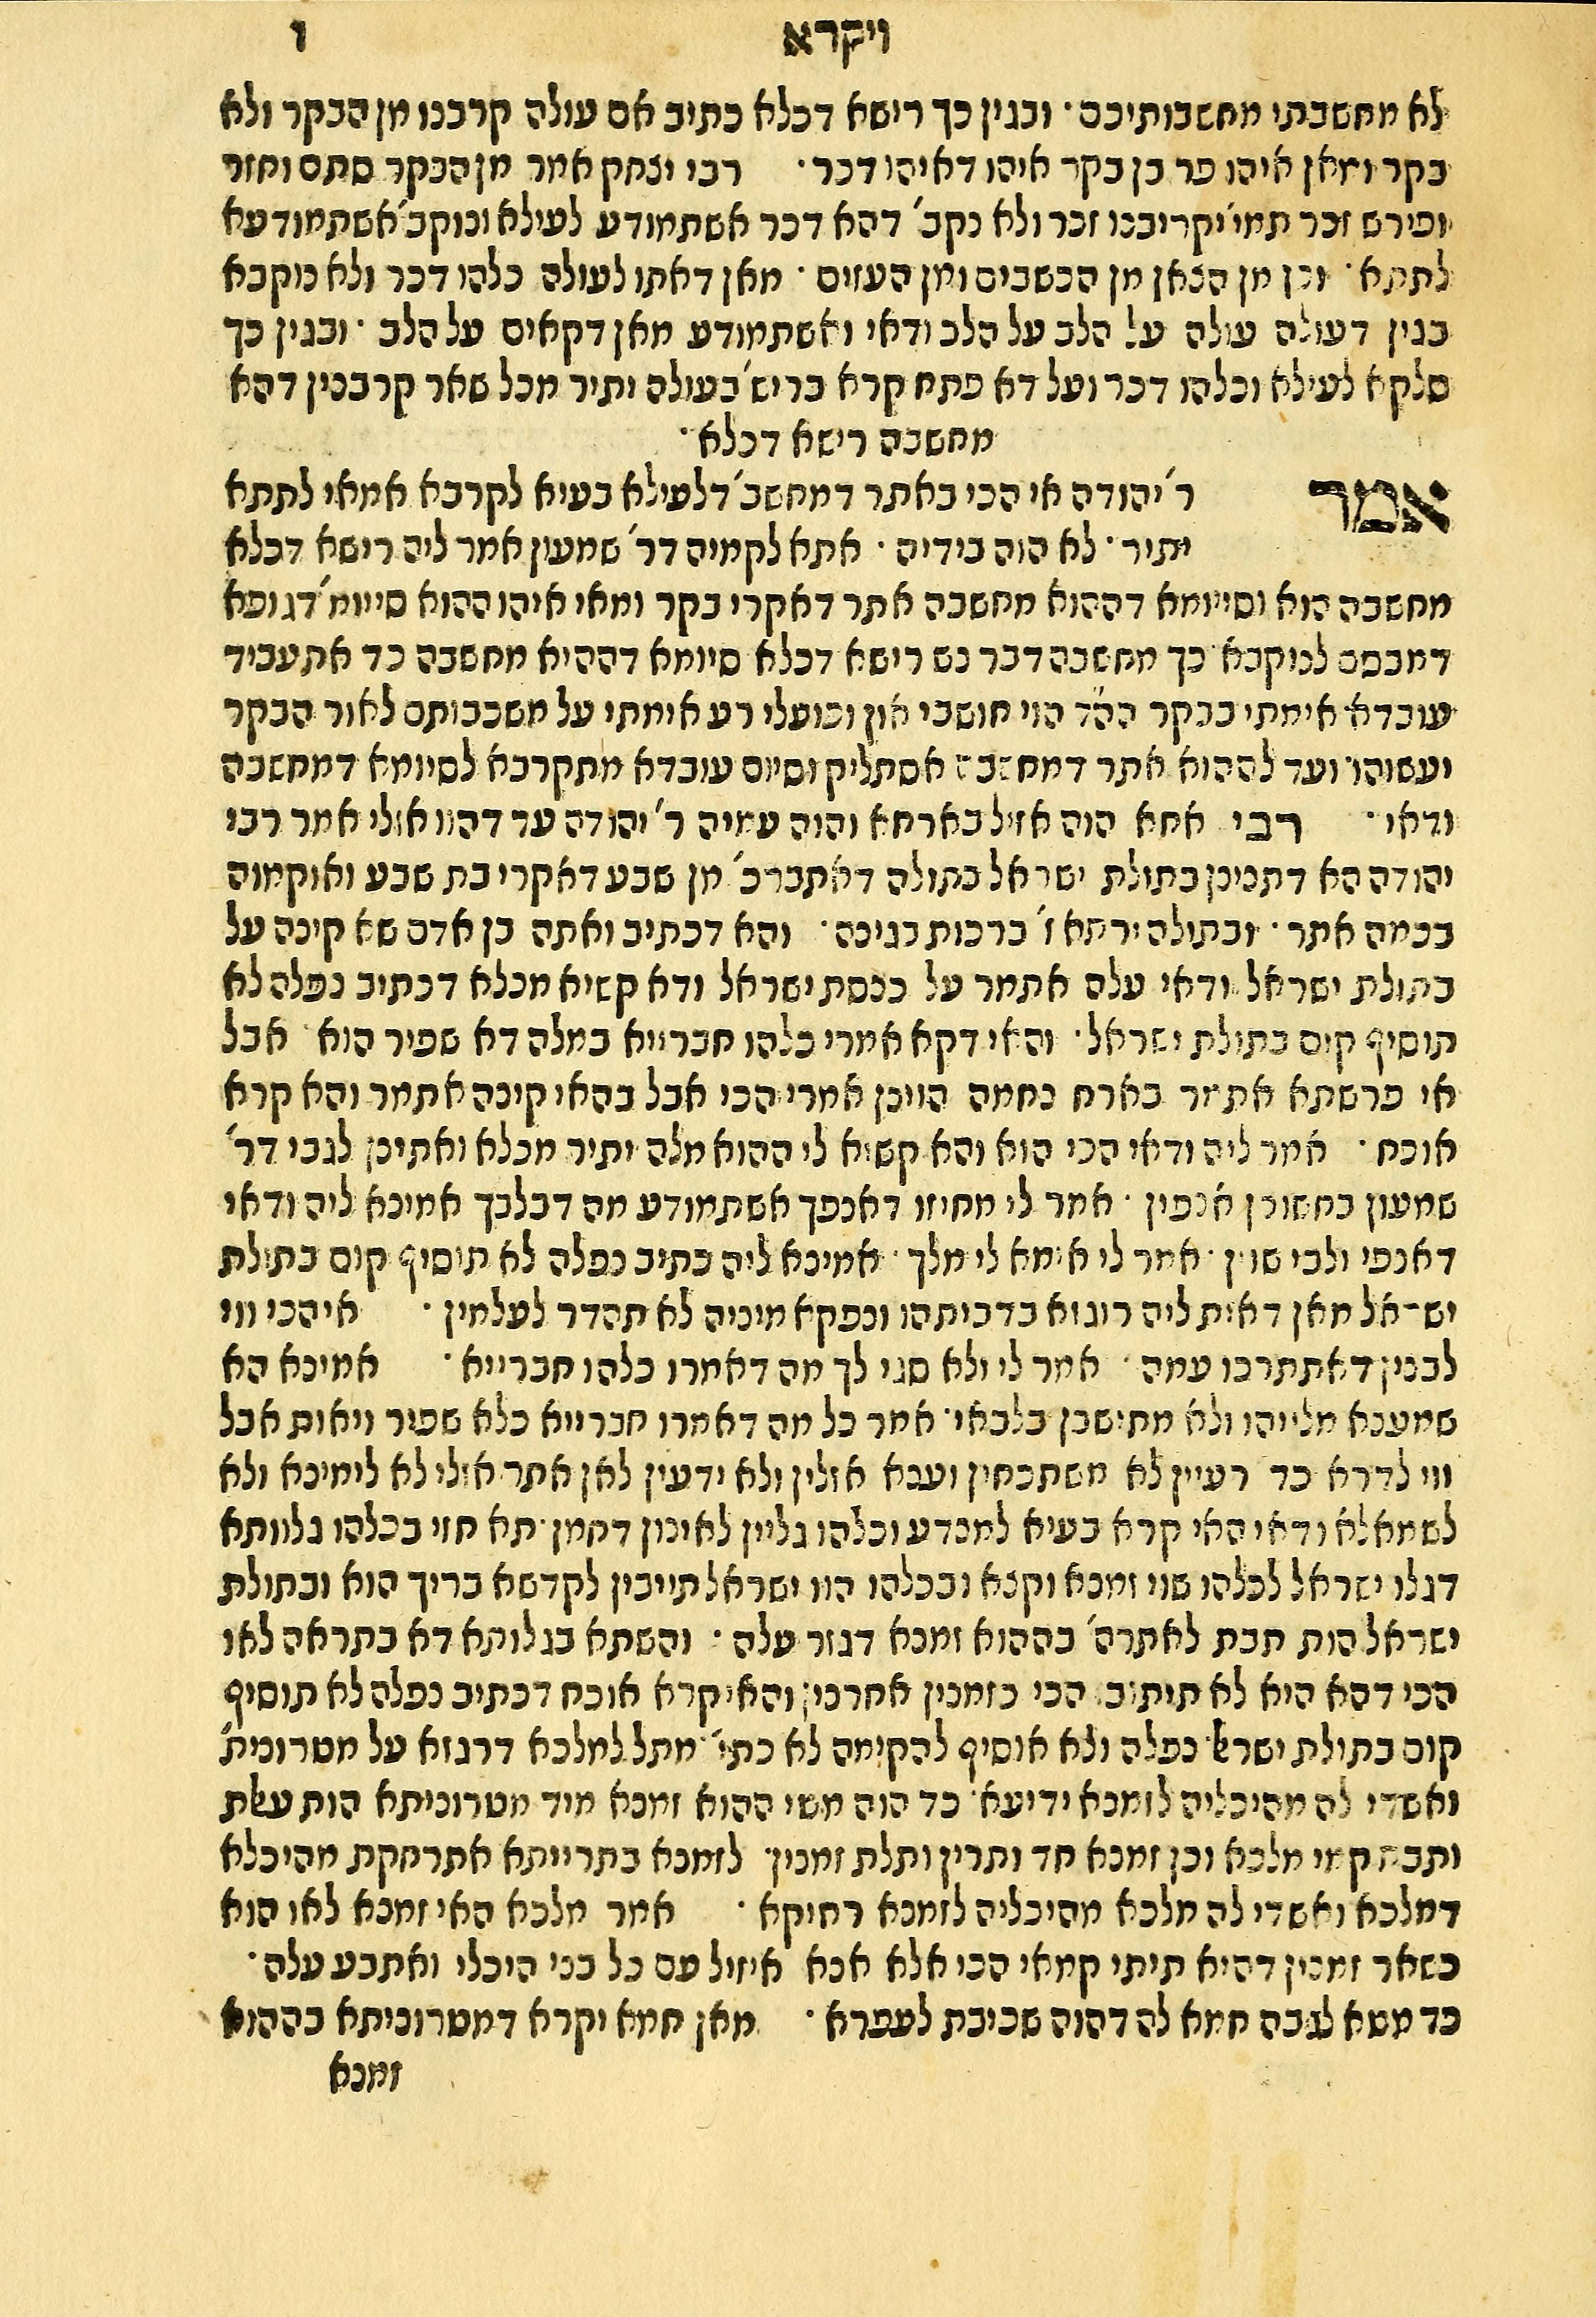 ויקרא ו
לא מחשבתי מחשבותיכם · ובגין כך רישא דכלא כתיב אם עולה קרבנו מן הבקר ולא
בקר ומאן איהו פר בן בקר איהו דאיהו דכר · רבי יצחק אמר מן הבקר סתם וחזר
ופירש זכר תמי׳ יקריבנו זכר ולא נקב׳ דהא דכר אשתמודע לעילא ונוקב׳ אשתמודעא
לתתא · וכן מן הצאן מן הכשבים ומן העזים · מאן דאתו לעולה כלהו דכר ולא נוקבא
בגין דעולה עולה על הלב על הלב ודאי ואשתמודע מאן דקאים על הלב · ובגין כך
סלקא לעילא וכלהו דכר ועל דא פתח קרא בריש׳ בעולה יתיר מכל שאר קרבנין דהא
מחשבה רישא דכלא ·
אמר ר׳ יהודה אי הכי באתר דמחשב׳ דלעילא בעיא לקרבא אמאי לתתא
יתיר · לא הוה בידיה · אתא לקמיה דר׳ שמעון אמר ליה רישא דכלא
מחשבה הוא וסיומא דההוא מחשבה אתר דאקרי בקר ומאי איהו ההוא סיומ׳ דגופא
דמבסם לנוקבא · כך מחשבה דבר נש רישא דכלא סיומא דההיא מחשבה כד אתעביד
עובדא אימתי בבקר הה״ד הוי חושבי און ופועלי רע אימתי על משכבותם לאור הבקר
יעשוהו · ועד לההוא אתר דמחשבה אסתליק וסיום עובדא מתקרבא לסיומא דמחשבה
ודאי · רבי אחא הוה אזיל בארחא והוה עמיה ר׳ יהודה עד דהוו אזלי אמר רבי
יהודה הא דתנינן בתולת ישראל בתולה דאתברכ׳ מן שבע דאקרי בת שבע ואוקמוה
בכמה אתר · ובתולה ירתא ז׳ ברכות בגינה · והא דכתיב ואתה בן אדם שא קינה על
בתולת ישראל ודאי עלה אתמר על כנסת ישראל ודא קשיא מכלא דכתיב נפלה לא
תוסיף קום בתולת ישראל · והאי דקא אמרי כלהו חברייא במלה דא שפיר הוא · אבל
אי פרשתא אתמר בארח נחמה הוינן אמרי הכי אבל בהאי קינה אתמר והא קרא
אוכח · אמר ליה ודאי הכי הוא והא קשיא לי ההוא מלה יתיר מכלא ואתינן לגבי דר׳
שמעון בחשוכן אנפין · אמר לי מחיזו דאנפך אשתמודע מה דבלבך אמינא ליה ודאי
דאנפי ולבי שוין · אמר לי אימא לי מלך · אמינא ליה כתיב נפלה לא תוסיף קום בתולת
ישראל מאן דאית ליה רוגזא בדביתהו ונפקא מיניה לא תהדר לעלמין · אי הכי ווי
לבנין דאתתרכו עמה · אמר לי ולא סגי לך מה דאמרו כלהו חברייא · אמינא הא
שמענא מלייהו ולא מתישבן בלבאי · אמר כל מה דאמרו חברייא כלא שפיר ויאות אבל
ווי לדרא כד רעיין לא משתכחין ועגא אזלין ולא ידעין לאן אתר אזלי לא לימינא ולא
לשמאלא ודאי האי קרא בעיא למנדע וכלהו גליין לאינון דחמן · תא חזי בכלהו גלוותא
דגלו ישראל לכלהו שוי זמנא וקצא ובכלהו הוו ישראל תייבין לקדשא בריך הוא ובתולת
ישראל הות תבת לאתרה׳ בההוא זמנא דגזר עלה · והשתא בגלותא דא בתראה לאו
הכי דהא היא לא תיתוב הכי כזמנין אחרנין והאי קרא אוכח דכתיב נפלה לא תוסיף
קום בתולת ישראל נפלה ולא אוסיף להקימה לא כתי׳ · מתל למלכא דרגזא על מטרונית׳
ואשדי לה מהיכליה לזמנא ידיעא · כד הוה מטי ההוא זמנא מיד מטרוניתא הות עאלת
ותבת קמי מלכא וכן זמנא חד ותרין ותלת זמנין · לזמנא בתרייתא אתרחקת מהיכלא
דמלכא ואשדי לה מלכא מהיכליה לזמנא רחיקא · אמר מלכא האי זמנא לאו הוא
כשאר זמנין דהיא תיתי קמאי הכי אלא אנא איזיל עם כל בני היכלי ואתבע עלה ·
כד מטא לגבה חמא לה דהוה שכיבת לעפרא · מאן חמא יקרא דמטרוניתא בההוא
זמנא